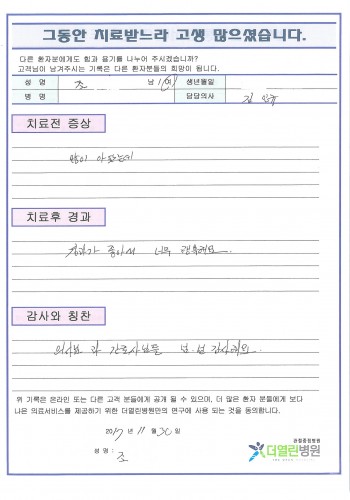 그동안 치료받느라 고생 많으셨습니다.
다른 환자분에게도 힘과 용기를 나누어 주시겠습니까?
고객님이 남겨주시는 기록은 다른 환자분들의 희망이 됩니다.
성 명 조 남 / 여 생년월일
병 명 담당의사 김
치료전 증상
많이 아팠는데
치료후 경과
경과가 좋아서 너무 행복해요
감사와 칭찬
의사쌤과 간호사님들 넘 감사해요
위 기록은 온라인 또는 다른 고객 분들에게 공개 될 수 있으며, 더 많은 환자 분들에게 보다
나은 의료서비스를 제공하기 위한 더열린병원만의 연구에 사용 되는 것을 동의합니다.
2017 년 11 월 30 일
성 명 : 조
관절중점병원
더열린병원